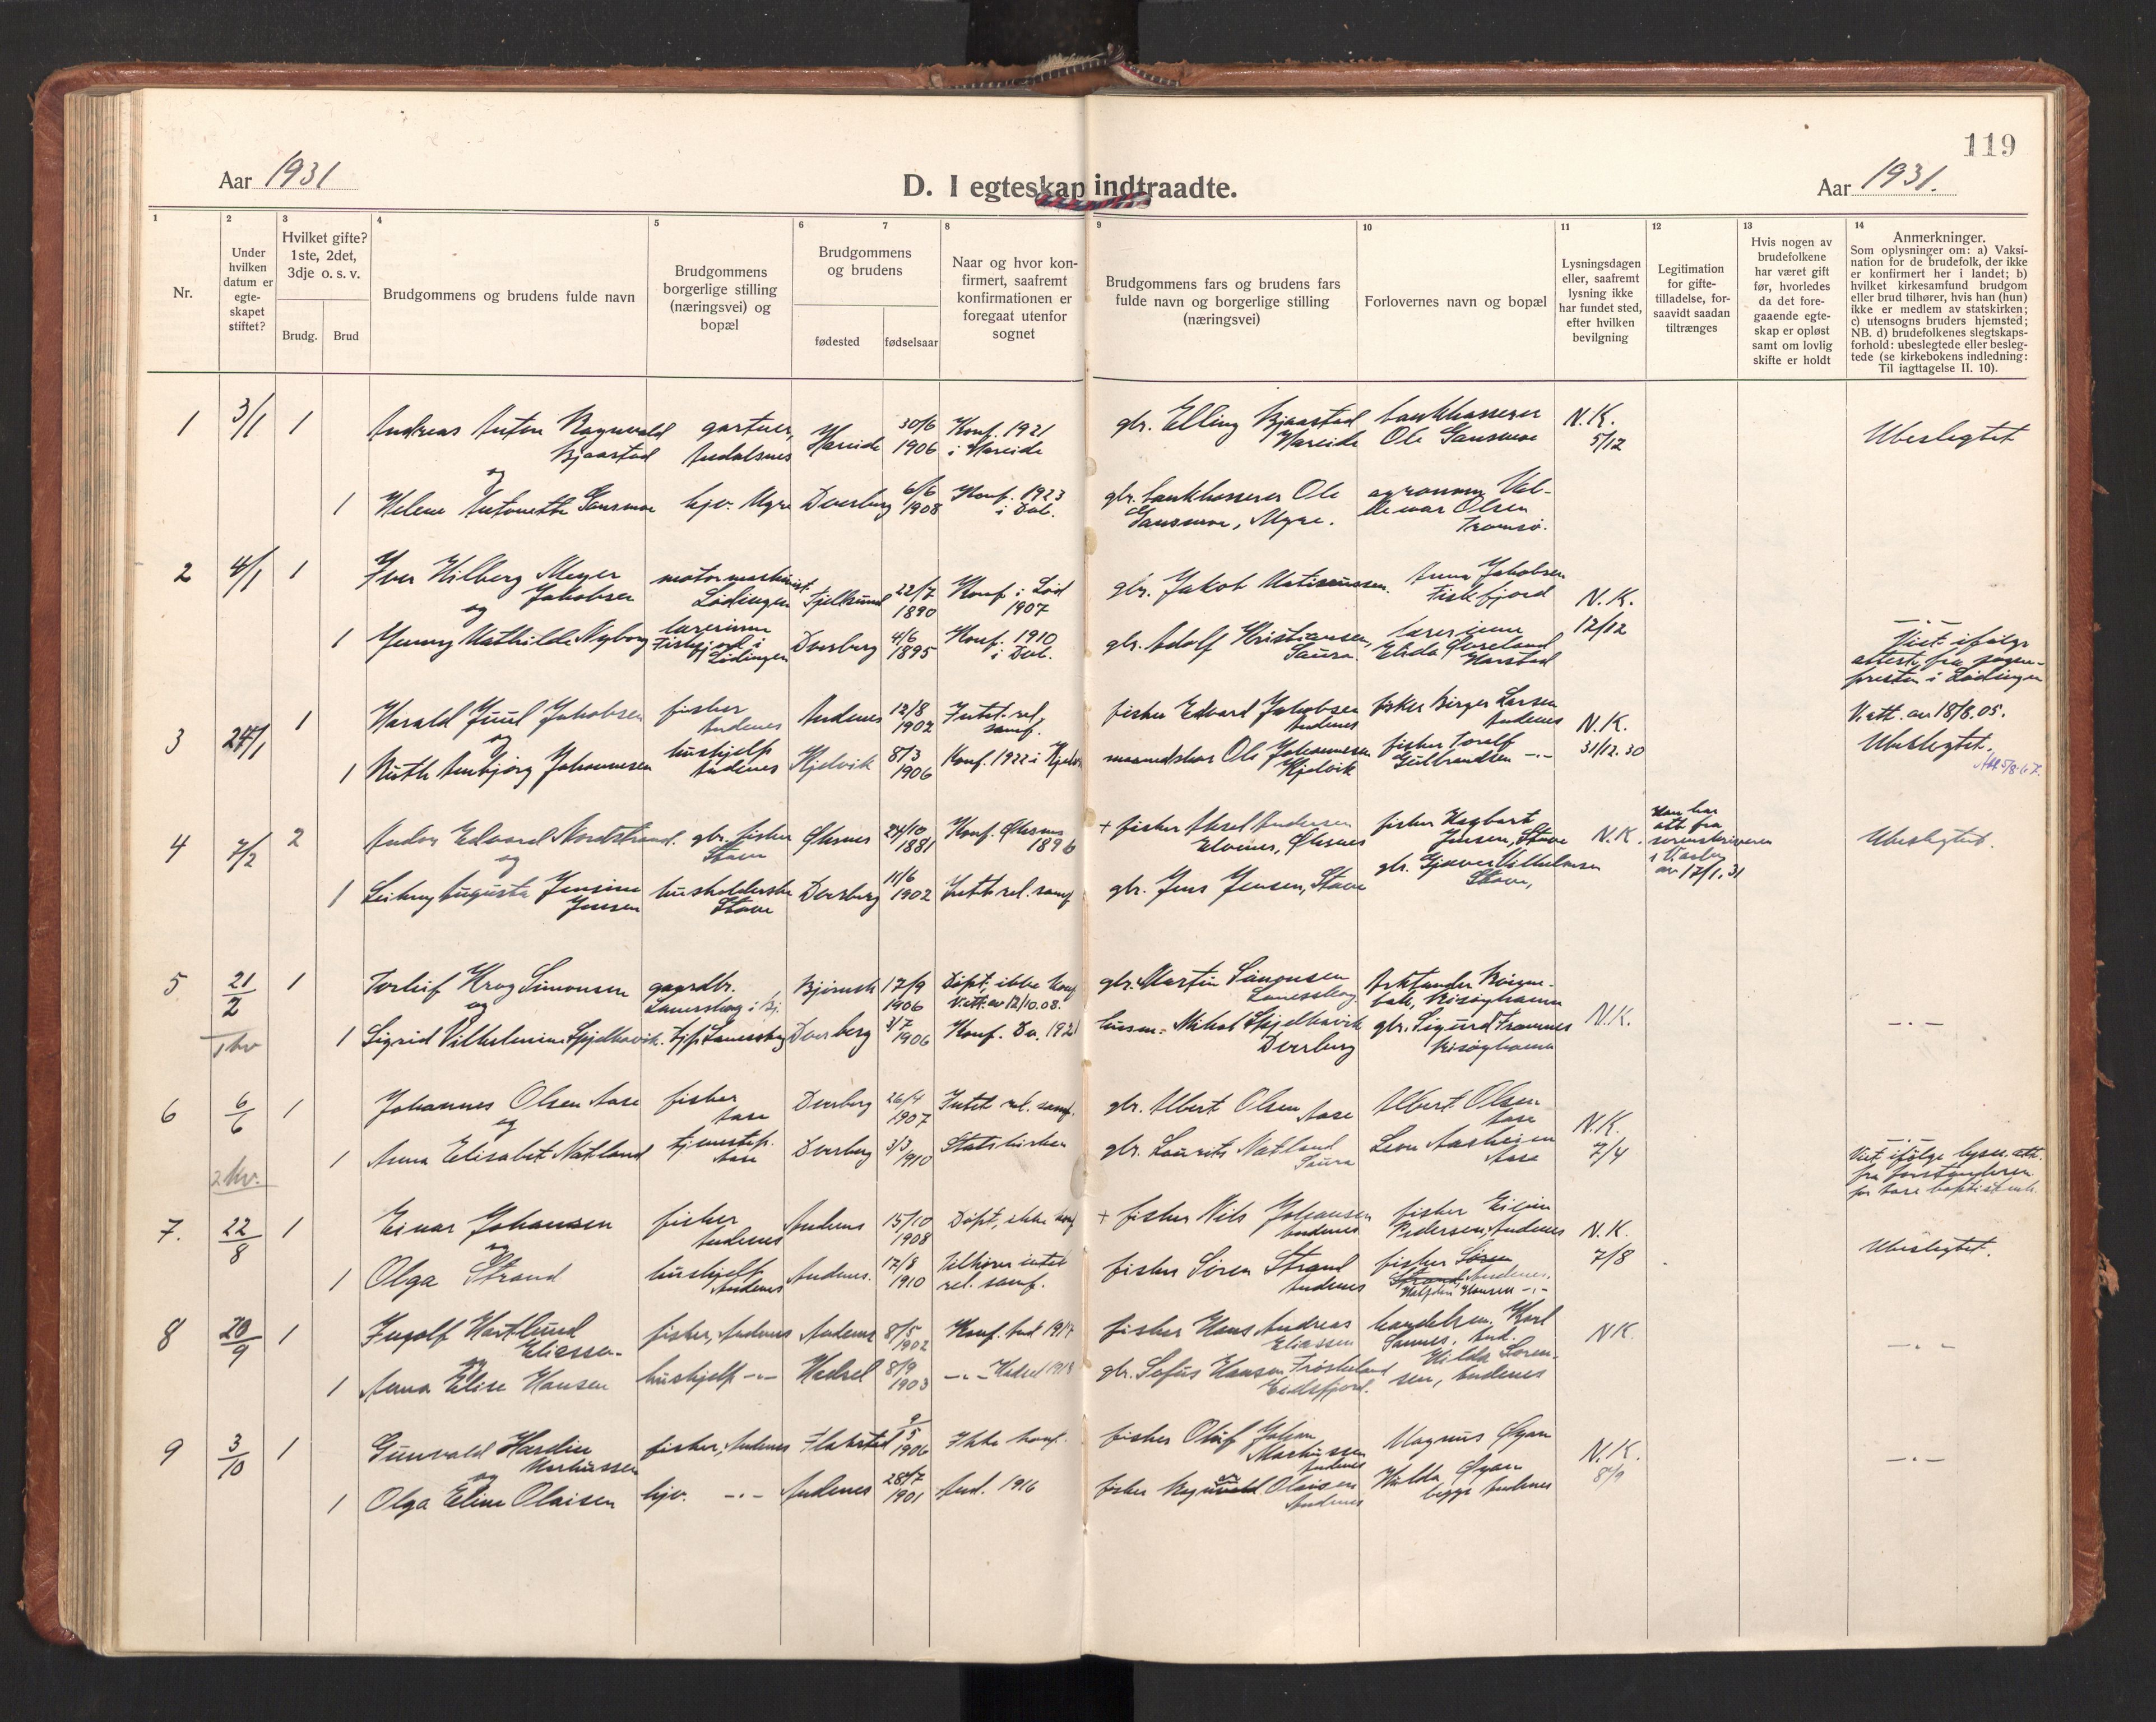 119
Aar 1931
D. I egteskap indtraadte.
Aar 1931.
1
2
3
4
5
6
7
8
9
10
11
12
13
14
Nr.
Under hvilken datum er egte-skapet stiftet?
Hvilket gifte? 1ste, 2det, 3dje o. s. v.
Brudg.
Brud
Brudgommens og brudens fulde navn
Brudgommens borgerlige stilling (næringsvei) og bopæl
Brudgommens og brudens
fødested
fødselsaar
Naar og hvor kon-firmert, saafremt konfirmationen er foregaat utenfor sognet
Brudgommens fars og brudens fars fulde navn og borgerlige stilling (næringsvei)
Forlovernes navn og bopæl
Lysningsdagen eller, saafremt lysning ikke har fundet sted, efter hvilken bevilgning
Legitimation for gifte-tilladelse, for-saavidt saadan tiltrænges
Hvis nogen av brudefolkene har været gift før, hvorledes da det fore-gaaende egte-skap er opløst samt om lovlig skifte er holdt
Anmerkninger.
Som oplysninger om: a) Vaksi-nation for de brudefolk, der ikke er konfirmert her i landet; b) hvilket kirkesamfund brudgom eller brud tilhører, hvis han (hun) ikke er medlem av statskirken; c) utensogns bruders hjemsted; NB. d) brudefolkenes slegtskaps-forhold: ubeslegtede eller besleg-tede (se kirkebokens indledning: Til iagttagelse II. 10).
1 3/1 1 Andreas Anton Ragnvald gartner, Hareide 30/6 Konf. 1921 gbr. Elling Bjaastad bankkasserer N.K. Ubeslegtet
Bjaastad Aandalsnes 1906 i Hareide Hareide Ole Gansmoe 5/12
og
1 Helene Antonette Gansmoe hjv. Myre Dverberg 6/6 1908 Konf. 1923 i Dvb. gbr. bankkasserer Ole agronom Val-
Gansmoe, Myre. demar Olsen
Tromsø.
2 4/1 1 Iver Hilberg Meyer motormaskinist Fjelksund 22/7 Konf. i Lød gbr. Jakob Anna Jakobsen N.K.
Jakobsen Lødingen 1890 1907 Fiskfjord 12/12
og
1 Jenny Mathilde Nyborg lærerinne Dverberg 4/6 Konf. 1910 gbr. Adolf Kristiansen, lærerinne
Fiskfjord i Lødingen 1895 i Dvb. Saura Elida Harstad
Viet ifølge
attest fra sogne-
presten i Lødingen
3 24/1 1 Harald Juul Jakobsen fisker Andenes 12/8 Intet rel. fisker Edvard Jakobsen fisker Birger Larsen N.K. V.att. av 18/8.05.
og Andenes 1902 samf. Andenes Andenes 31/12.30 Ubeslegtet.
1 Ruth Annbjørg Johannesen hushjelp Hjelvik 8/3 Konf. 1922 i Ole Johannesen fisker Toralf
Andenes 1906 Hjelvik Gulbrandsen -"-
4 7/2 2 Andor Edvard Nordstrand. gbr. fisker Øksnes 24/10 Konf. Øksnes + fisker Aksel Andersen fisker Hagbart N.K. Han har Ubeslegtet.
og Stave 1881 1896 Elvenes, Øksnes Jensen, Stave att. fra
sorenskriveren
1 Augusta Jensine husholderske Dverberg 11/6 Intet rel. samf gbr. Jens Jensen, Stave gbr. Gjæver Vilhelmsen i Vesterå
Jensen Stave 1902 Stave, av 17/1.31
5 21/2 1 Torleif Krog Simonsen gaardbr. Bjørnsk 17/9 Døpt, ikke konf gbr. Martin Simonsen N.K. -"-
og Lanesskog i Bj. 1906 V.att. av 12/10.08. Lanesskog Risøyhamn
1 hv
1 Sigrid Vilhelmine Skjelhavik. tjp. Lanesskog Dverberg 3/7 1906 Konf. Dv. 1921 husm. Mikal Skjelhavik gbr. Sigurd Framnes
Dverberg Risøyhamn
6 6/6 1 Johannes Olsen Aase fisker Dverberg 26/4 Intet rel. samf. gbr. Albert Olsen Albert Olsen N.K.
og Aase 1907 Aase Aase 7/4
1 Anna Elisabet Natland tjenestep. Dverberg 3/3 1910 Statskirken gbr. Laurits Natland Leon Aasheim
Aase Saura Aase
2 kv.
Viet ifølge lysn. att.
fra forstanderen
for Aase baptistmh.
7. 22/8 1 Einar Johansen fisker Andenes 15/10 Døpt, ikke konf + fisker Nils Johansen fisker N.K.
og Andenes 1908 Andenes Pedersen, Andenes 7/8 Ubeslegtet.
1 Olga Strand hushjelp Andenes. 17/8 Tilhører intet fisker Søren Strand fisker Søren
Andenes 1910 rel. samf. Andenes Strand, Andenes.
Hansen -"-
8 20/9 1 Ingolf Hartlund fisker, Andenes Andenes 8/5 Konf. And 1917 fisker Hans Andreas handelsm. Karl NK. -"-
Eliassen. 1902 Eliassen Sannes, And.
og
1 Anna Elise Hansen hushjelp -"- Hadsel 8/9 -"- Hadsel 1918 gbr. Sefus Hansen, Frøskeland Hilda Soren-
1903 Eidsfjord. sen, Andenes
9 3/10 1 Gunvald Hardin fisker, Andenes Flakstad 9/5 Ikke konf. fisker Oluf Johan Magnus Øyan N.K. -"-
Markussen 1906 Markussen 8/9
og Andenes
1 Olga Eline Olaisen hjv. -"- Andenes 28/7 And. 1916 fisker Olaisen Hilda Øyan
1901 Andenes begge Andenes